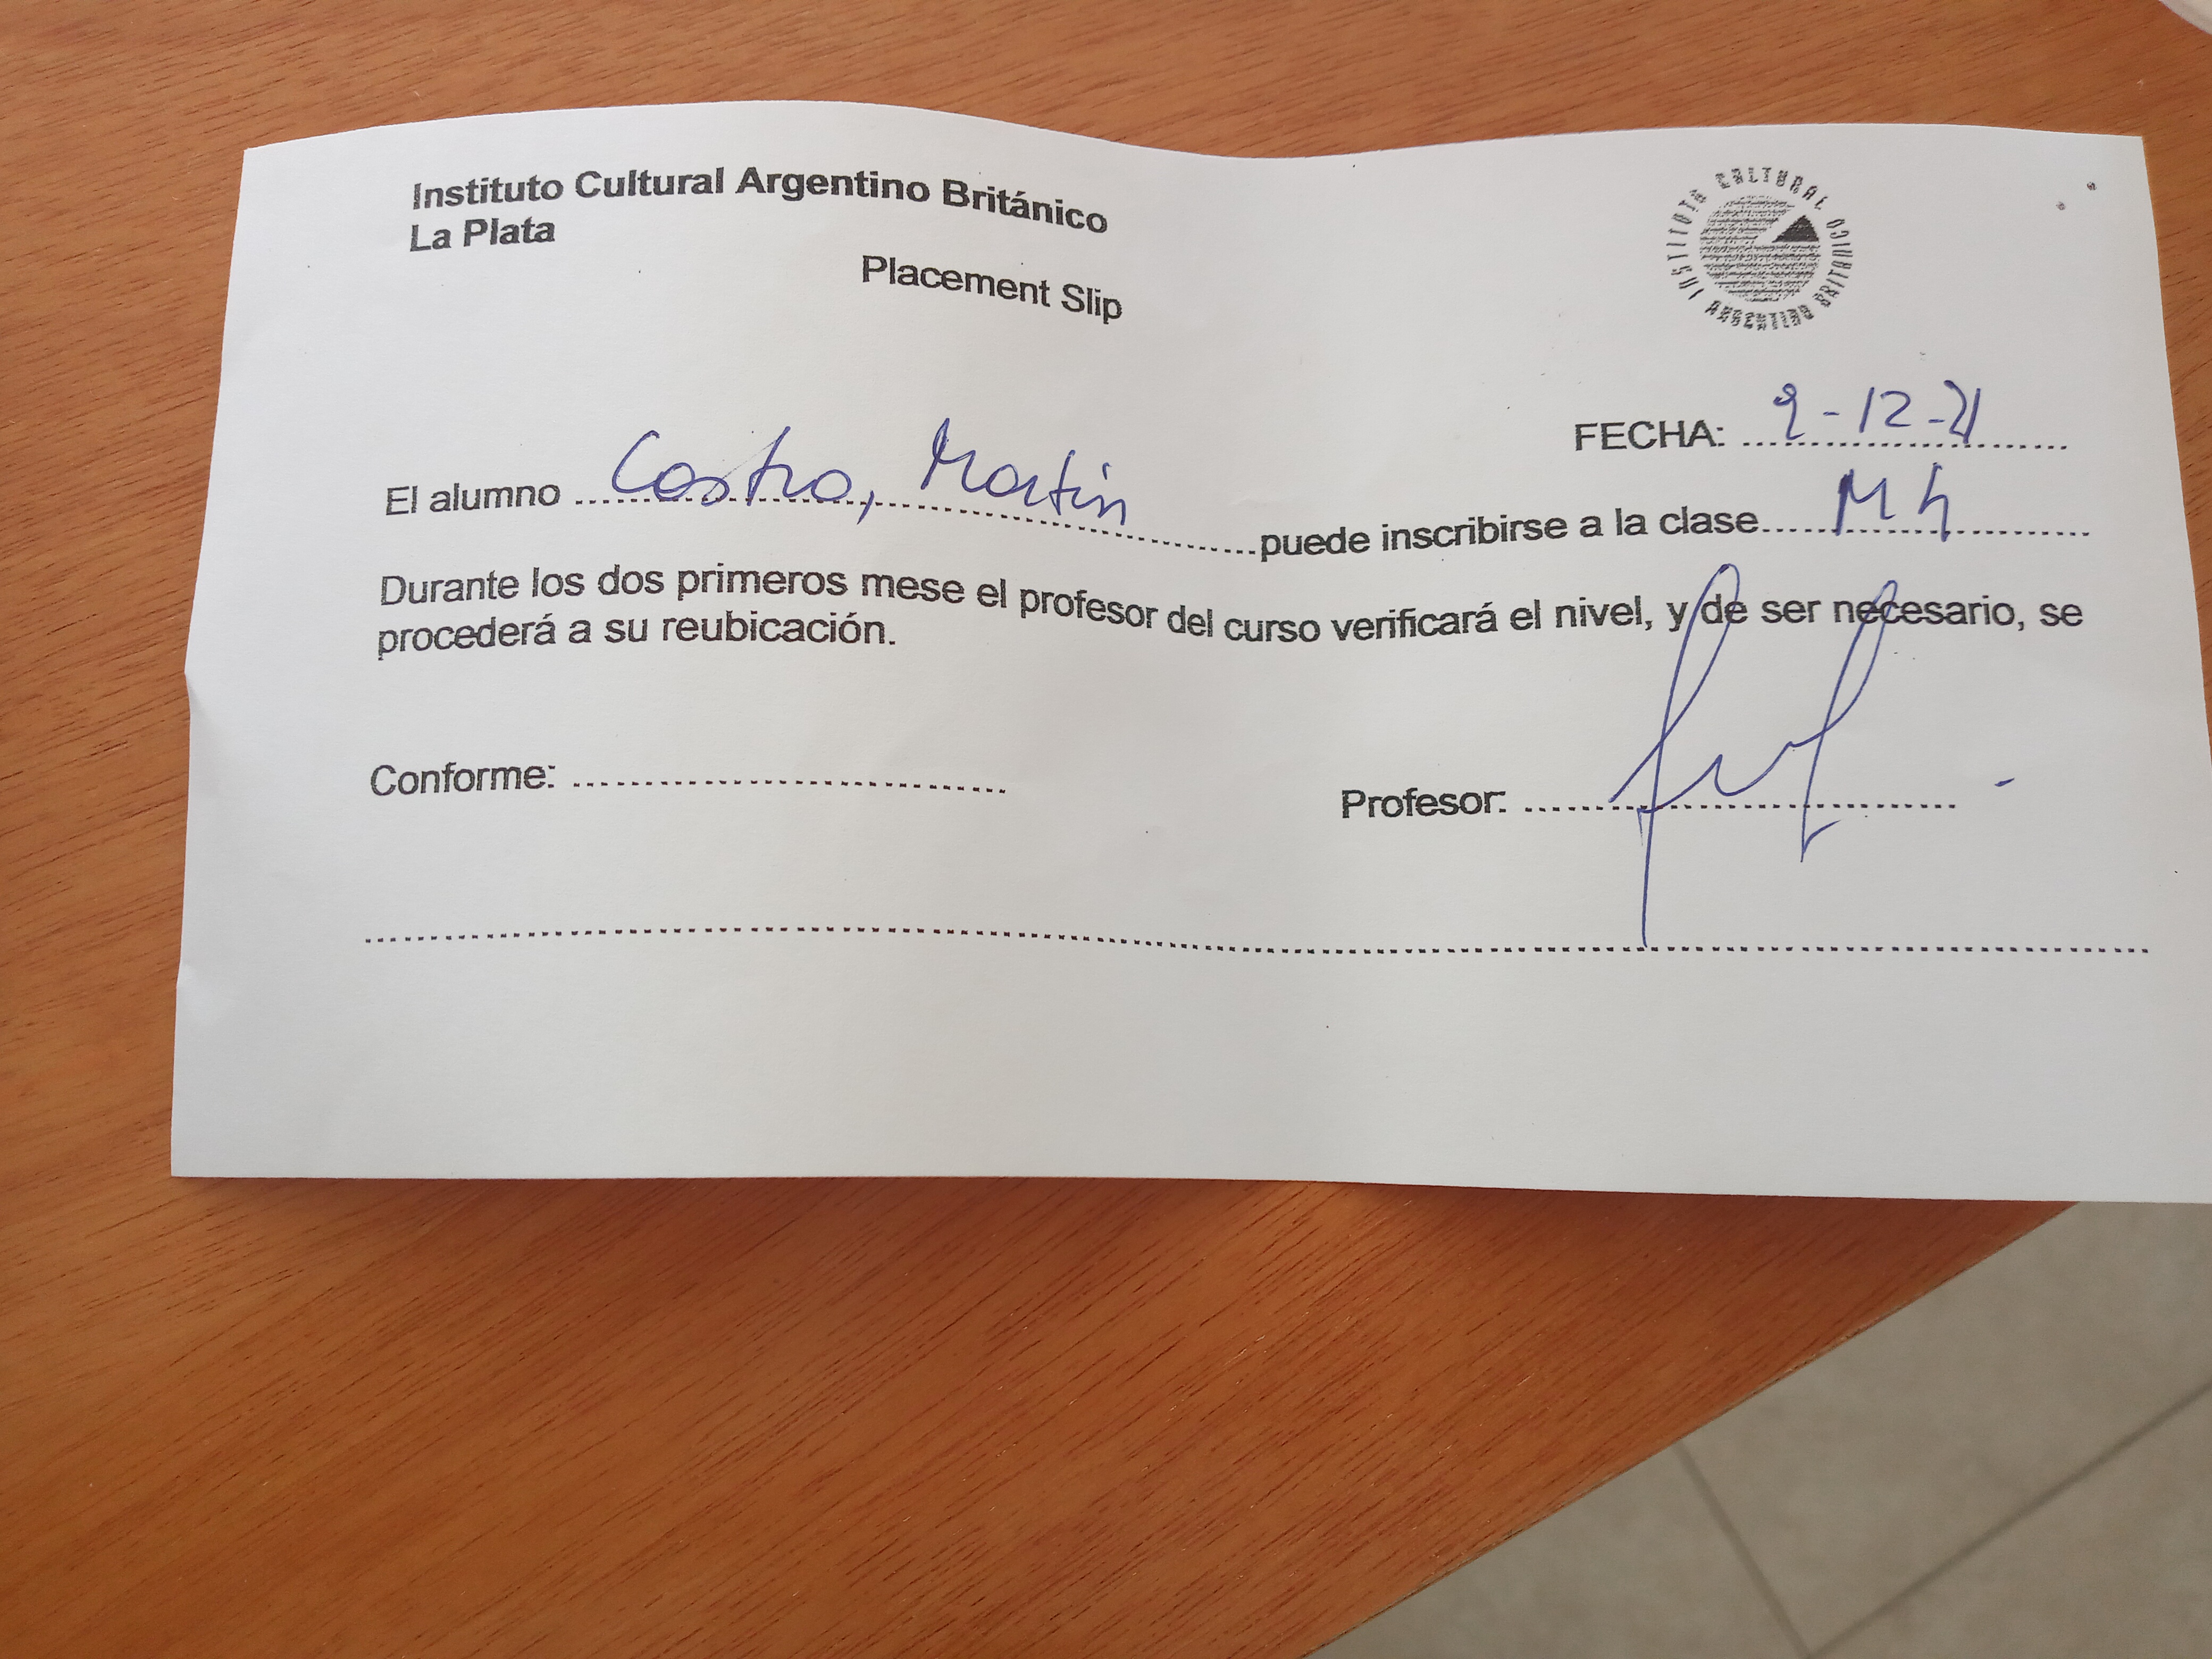 Instituto Cultural Argentino Británico
La Plata
Placement Slip
INSTITUTO CULTURAL ARGENTINO BRITANICO
FECHA: 9-12-21
El alumno Castro, Martin puede inscribirse a la clase M4
Durante los dos primeros mese el profesor del curso verificará el nivel, y de ser necesario, se
procederá a su reubicación.
Conforme: Profesor: